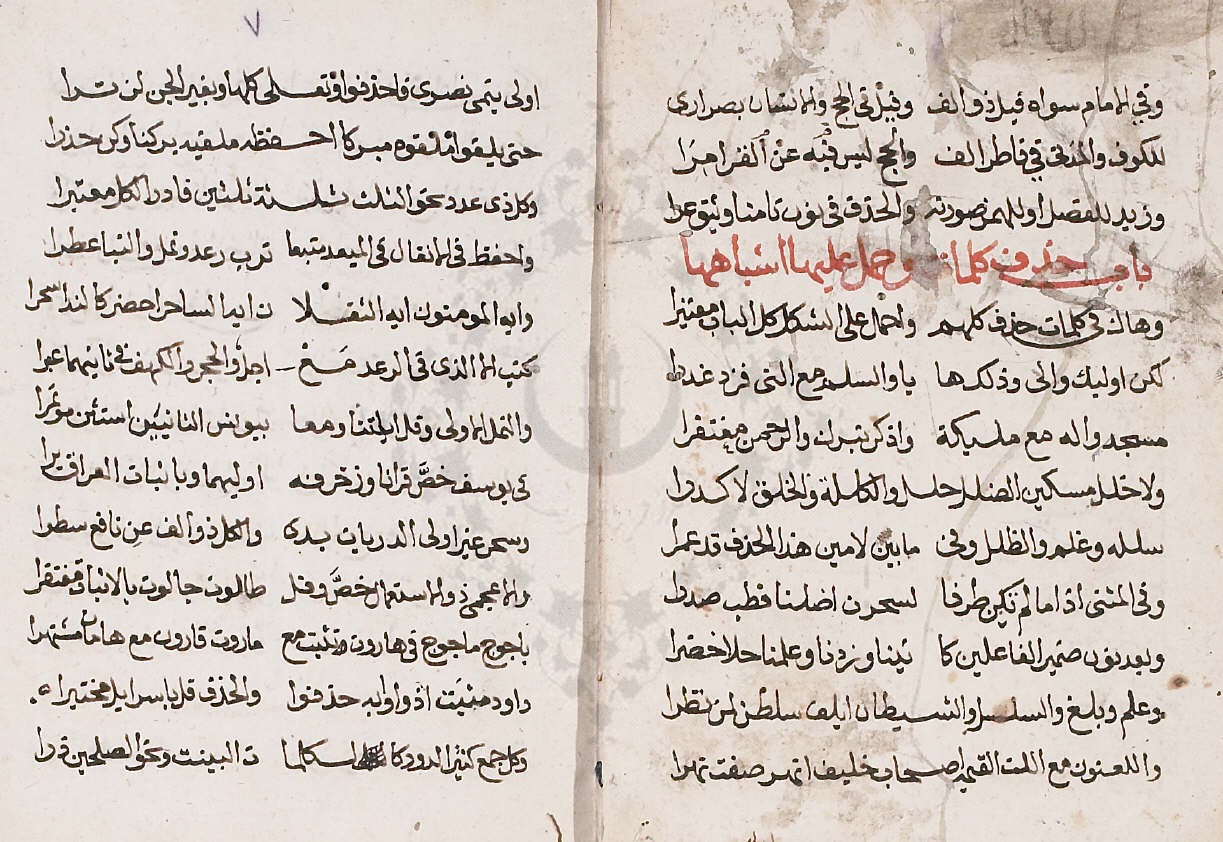 وفي الامام سواه قيل ذو الف وقيل في الحج والانسان بصر ارى
للكوف والمدني في فاطر الف والحج ليس فيه عن الفرا مرا
وزيد للفصل او للهمز صورته والحذف في نون تامنا وثيق عرا
باب حذف في كلمات وحمل عليها اشباهها
وهاك في كلمات حذف كلهم واحمل على الشكل كل الباب معتبرا
لكن اوليك والى وذلك ها يا والسلم مع التى فزد غدرا
مسجد واله مع مليكة واذكر تبرك والرحمن مغتفرا
ولا خلل مسكين الضلل حلل والكللة والخلق لا كدرا
سلله وغلم والظلل وفي ما بين لامين هذا الحذف قد عمرا
وفى المثنى اذا ما لم تكن طرفا لسحرن اضلنا فطب صدرا
وبعد نون ضمير الفاعلين كا تينا وزدنا وعلمنا حلا خضرا
وعلم وبلغ والسلسل والشيطان ايلف سلطن لمن نظرا
واللعنون مع اللت القيمه اصحاب خليف انهر صفت نهرا
٧
اولى يتمى نصرى فاحذفوا وتعلى كلها وبغير الجن لن ترا
حتى يلقوا ملقوه مبركا احفظه ملقيه بركنا وكن حذرا
وكل ذى عدد نحو الثلث ثلثة ثلثين فادر الكل معتبرا
واحفظ في الانفال في الميعد متبعا ترب رعد ونمل والنبا عطرا
وايه المومنون ايه الثقلا ن ايه الساحر احضر كالندا سحرا
كتب الا الذى في الرعد مع اجل والحجر والكهف في ثانيهما غبرا
والنمل الاولى وقل ايتنا ومعا بيونس الثانيين استثن موتمرا
في يوسف خص قرانا وزخرفه اوليهما وباثبات العراق يرا
وسحر غير اولى الذريات بدى والكل ذو الف عن نافع سطرا
والاعجمى ذو الاستعمال خص وقل طالوت جالوت بالاثبات مفتقرا
ياجوج ماجوج في هاروت تثبت مع ماروت قارون مع هامان مشتهرا
داود مثبت اذ واوا به حذفوا والحذف قل باسرايل مختبرا
وكل جمع كثير الدور كالكلما ت البينت ونحو الصلحين ذرا